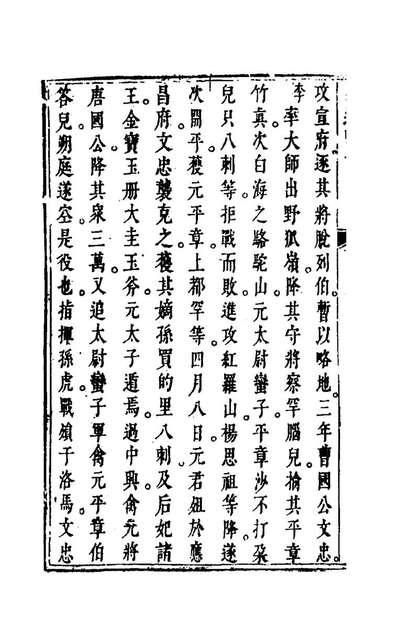 攻宣府逐其將脫列伯暫以略地。三年曹國公文忠
李率大師出野狐嶺。降其守將察罕腦兒擒其平章
竹真次白海之駱駝山元太尉蠻子平章沙不打朶
兒只八刺等拒戰而敗進攻紅羅山楊思祖等降。遂
次開平。獲元平章上都罕等。四月八日元君殂於應
昌府文忠襲克之。獲其嫡孫買的里八刺及后妃諸
王金寶玉册大圭玉斧元太子遁焉。過中興禽元將
唐國公降其衆三萬。又追太尉蠻子軍禽元平章伯
答兒朔庭遂空。是役也。指揮孫虎戰殞于洛馬。文忠